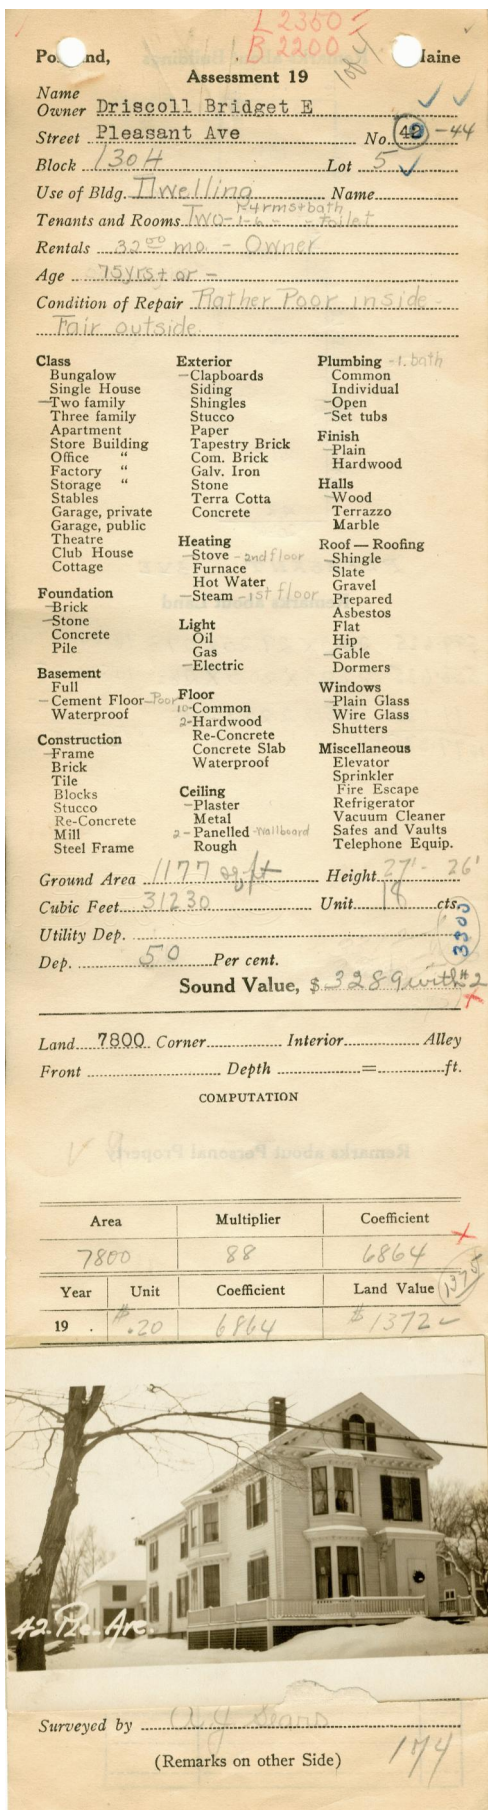 L 2350
B 2200
1004
Po nd, Maine
Assessment 19
Name
Owner Driscoll Bridget E
Street Pleasant Ave No. 42 -44
Block 130 H Lot 5
Use of Bldg. Dwelling Name
Tenants and Rooms Two-1-6- R4rms+bath -toilet
Rentals 32.00 mo. - Owner
Age 75yrs + or -
Condition of Repair Rather Poor inside -
Fair outside.
Class
Bungalow
Single House
-Two family
Three family
Apartment
Store Building
Office "
Factory "
Storage "
Stables
Garage, private
Garage, public
Theatre
Club House
Cottage
Foundation
-Brick
-Stone
Concrete
Pile
Basement
Full
-Cement Floor -Poor
Waterproof
Construction
-Frame
Brick
Tile
Blocks
Stucco
Re-Concrete
Mill
Steel Frame
Exterior
-Clapboards
Siding
Shingles
Stucco
Paper
Tapestry Brick
Com. Brick
Galv. Iron
Stone
Terra Cotta
Concrete
Heating
-Stove -2nd floor
Furnace
Hot Water
-Steam -1st floor
Light
Oil
Gas
-Electric
Floor
10-Common
2-Hardwood
Re-Concrete
Concrete Slab
Waterproof
Ceiling
-Plaster
Metal
2-Panelled -Wallboard
Rough
Plumbing -1. bath
Common
Individual
-Open
-Set tubs
Finish
-Plain
Hardwood
Halls
-Wood
Terrazzo
Marble
Roof — Roofing
-Shingle
Slate
Gravel
Prepared
Asbestos
Flat
Hip
-Gable
Dormers
Windows
-Plain Glass
Wire Glass
Shutters
Miscellaneous
Elevator
Sprinkler
Fire Escape
Refrigerator
Vacuum Cleaner
Safes and Vaults
Telephone Equip.
Ground Area 1177 sq ft Height 27' - 26'
Cubic Feet 31230 Unit 18 cts.
Utility Dep.
3300
Dep. 50 Per cent.
Sound Value, $ 3289 with #2
Land 7800 Corner Interior Alley
Front Depth = ft.
COMPUTATION
Remarks about Personal Property
Area Multiplier Coefficient
7800 88 6864
1375
Year Unit Coefficient Land Value
19 . $.20 6864 $1372
42. Ple. Ave.
Surveyed by
(Remarks on other Side)
174